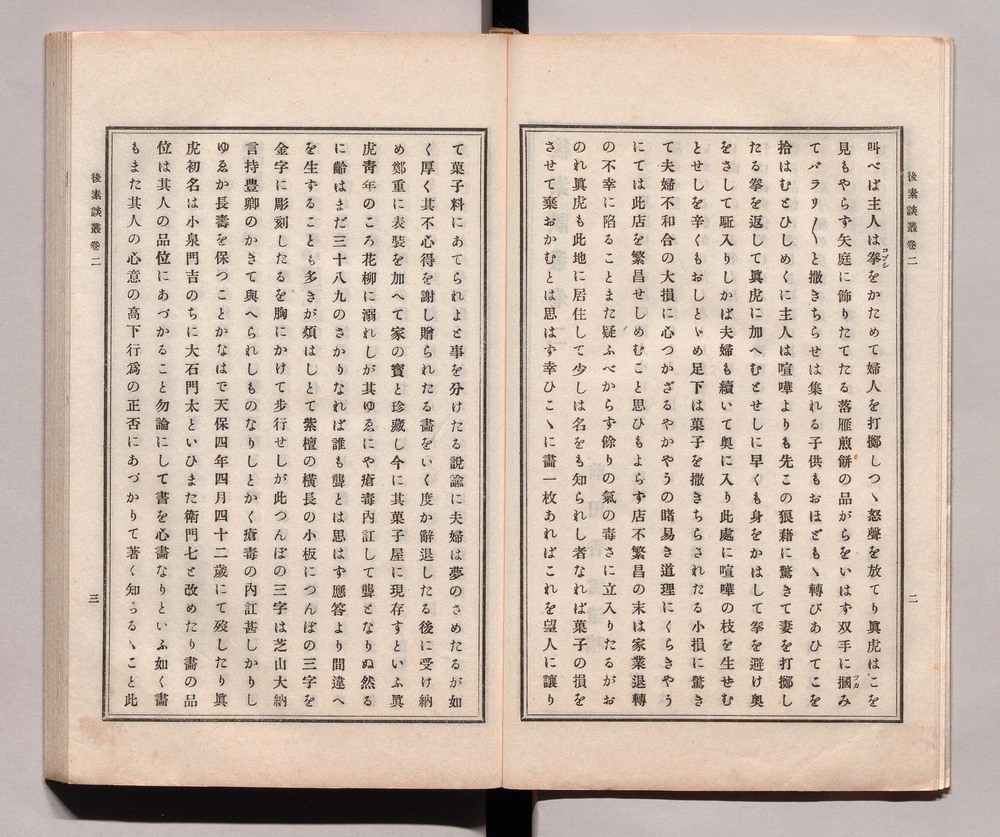 後素談叢卷二
二
叫べば主人は拳をかためて婦人を打擲しつゝ怒聲を放てり眞虎はこを
コブシ
見もやらず矢庭に飾りたてたる落雁煎餅の品がらをいはす双手に摑み
ツカ
てバラリ〱と撒きちらせは集れる子供もおほどもゝ轉びあひてこを
拾はむとひしめくに主人は喧嘩よりも先この狼藉に驚きて妻を打擲し
たる拳を返して眞虎に加へむとせしに早くも身をかはして拳を避け奥
をさして駈入りしかば夫婦も續いて奥に入り此處に喧嘩の枝を生せむ
とせしを辛くもおしとゞめ足下は菓子を撒きちらされたる小損に驚き
て夫婦不和合の大損に心つかざるやかやうの睹易き道理にくらきやう
にては此店を繁昌せしめむこと思ひもよらす店不繁昌の末は家業退轉
の不幸に陷ることまた疑ふべからす餘りの氣の毒さに立入りたるがお
のれ眞虎も此地に居住して少しは名をも知られし者なれば菓子の損を
させて棄おかむとは思はす幸ひこゝに畫一枚あればこれを望人に讓り
て菓子料にあてられよと事を分けたる說諭に夫婦は夢のさめたるが如
く厚く其不心得を謝し贈られたる畫をいく度か辭退したる後に受け納
め鄭重に表裝を加へて家の寶と珍藏し今に其菓子屋に現存すといふ眞
虎靑年のころ花柳に溺れしが其ゆゑにや瘡毒內訌して聾となりぬ然る
に齡はまだ三十八九のさかりなれば誰も聾とは思はす應答より間違へ
を生することも多きが煩はしとて紫檀の橫長の小板につんぼの三字を
金字に彫刻したるを胸にかけて步行せしが此つんぼの三字は芝山大納
言持豊卿のかきて與へられしものなりしとかく瘡毒の內訌甚しかりし
ゆゑか長壽を保つことかなはで天保四年四月四十二歲にて歿したり眞
虎初名は小泉門吉のちに大石門太といひまた衛門七と改めたり畵の品
位は其人の品位にあづかること勿論にして書を心畫なりといふ如く畵
もまた其人の心意の高下行爲の正否にあづかりて著く知らるゝこと此
後素談叢卷二
三